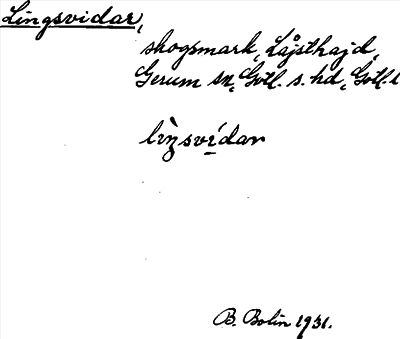 Lingsvidar,
skogsmark, Låjsthajd,
Gerum sn, Gotl. s. hd, Gotl. l
lìŋsvídar
B. Bolin 1931.